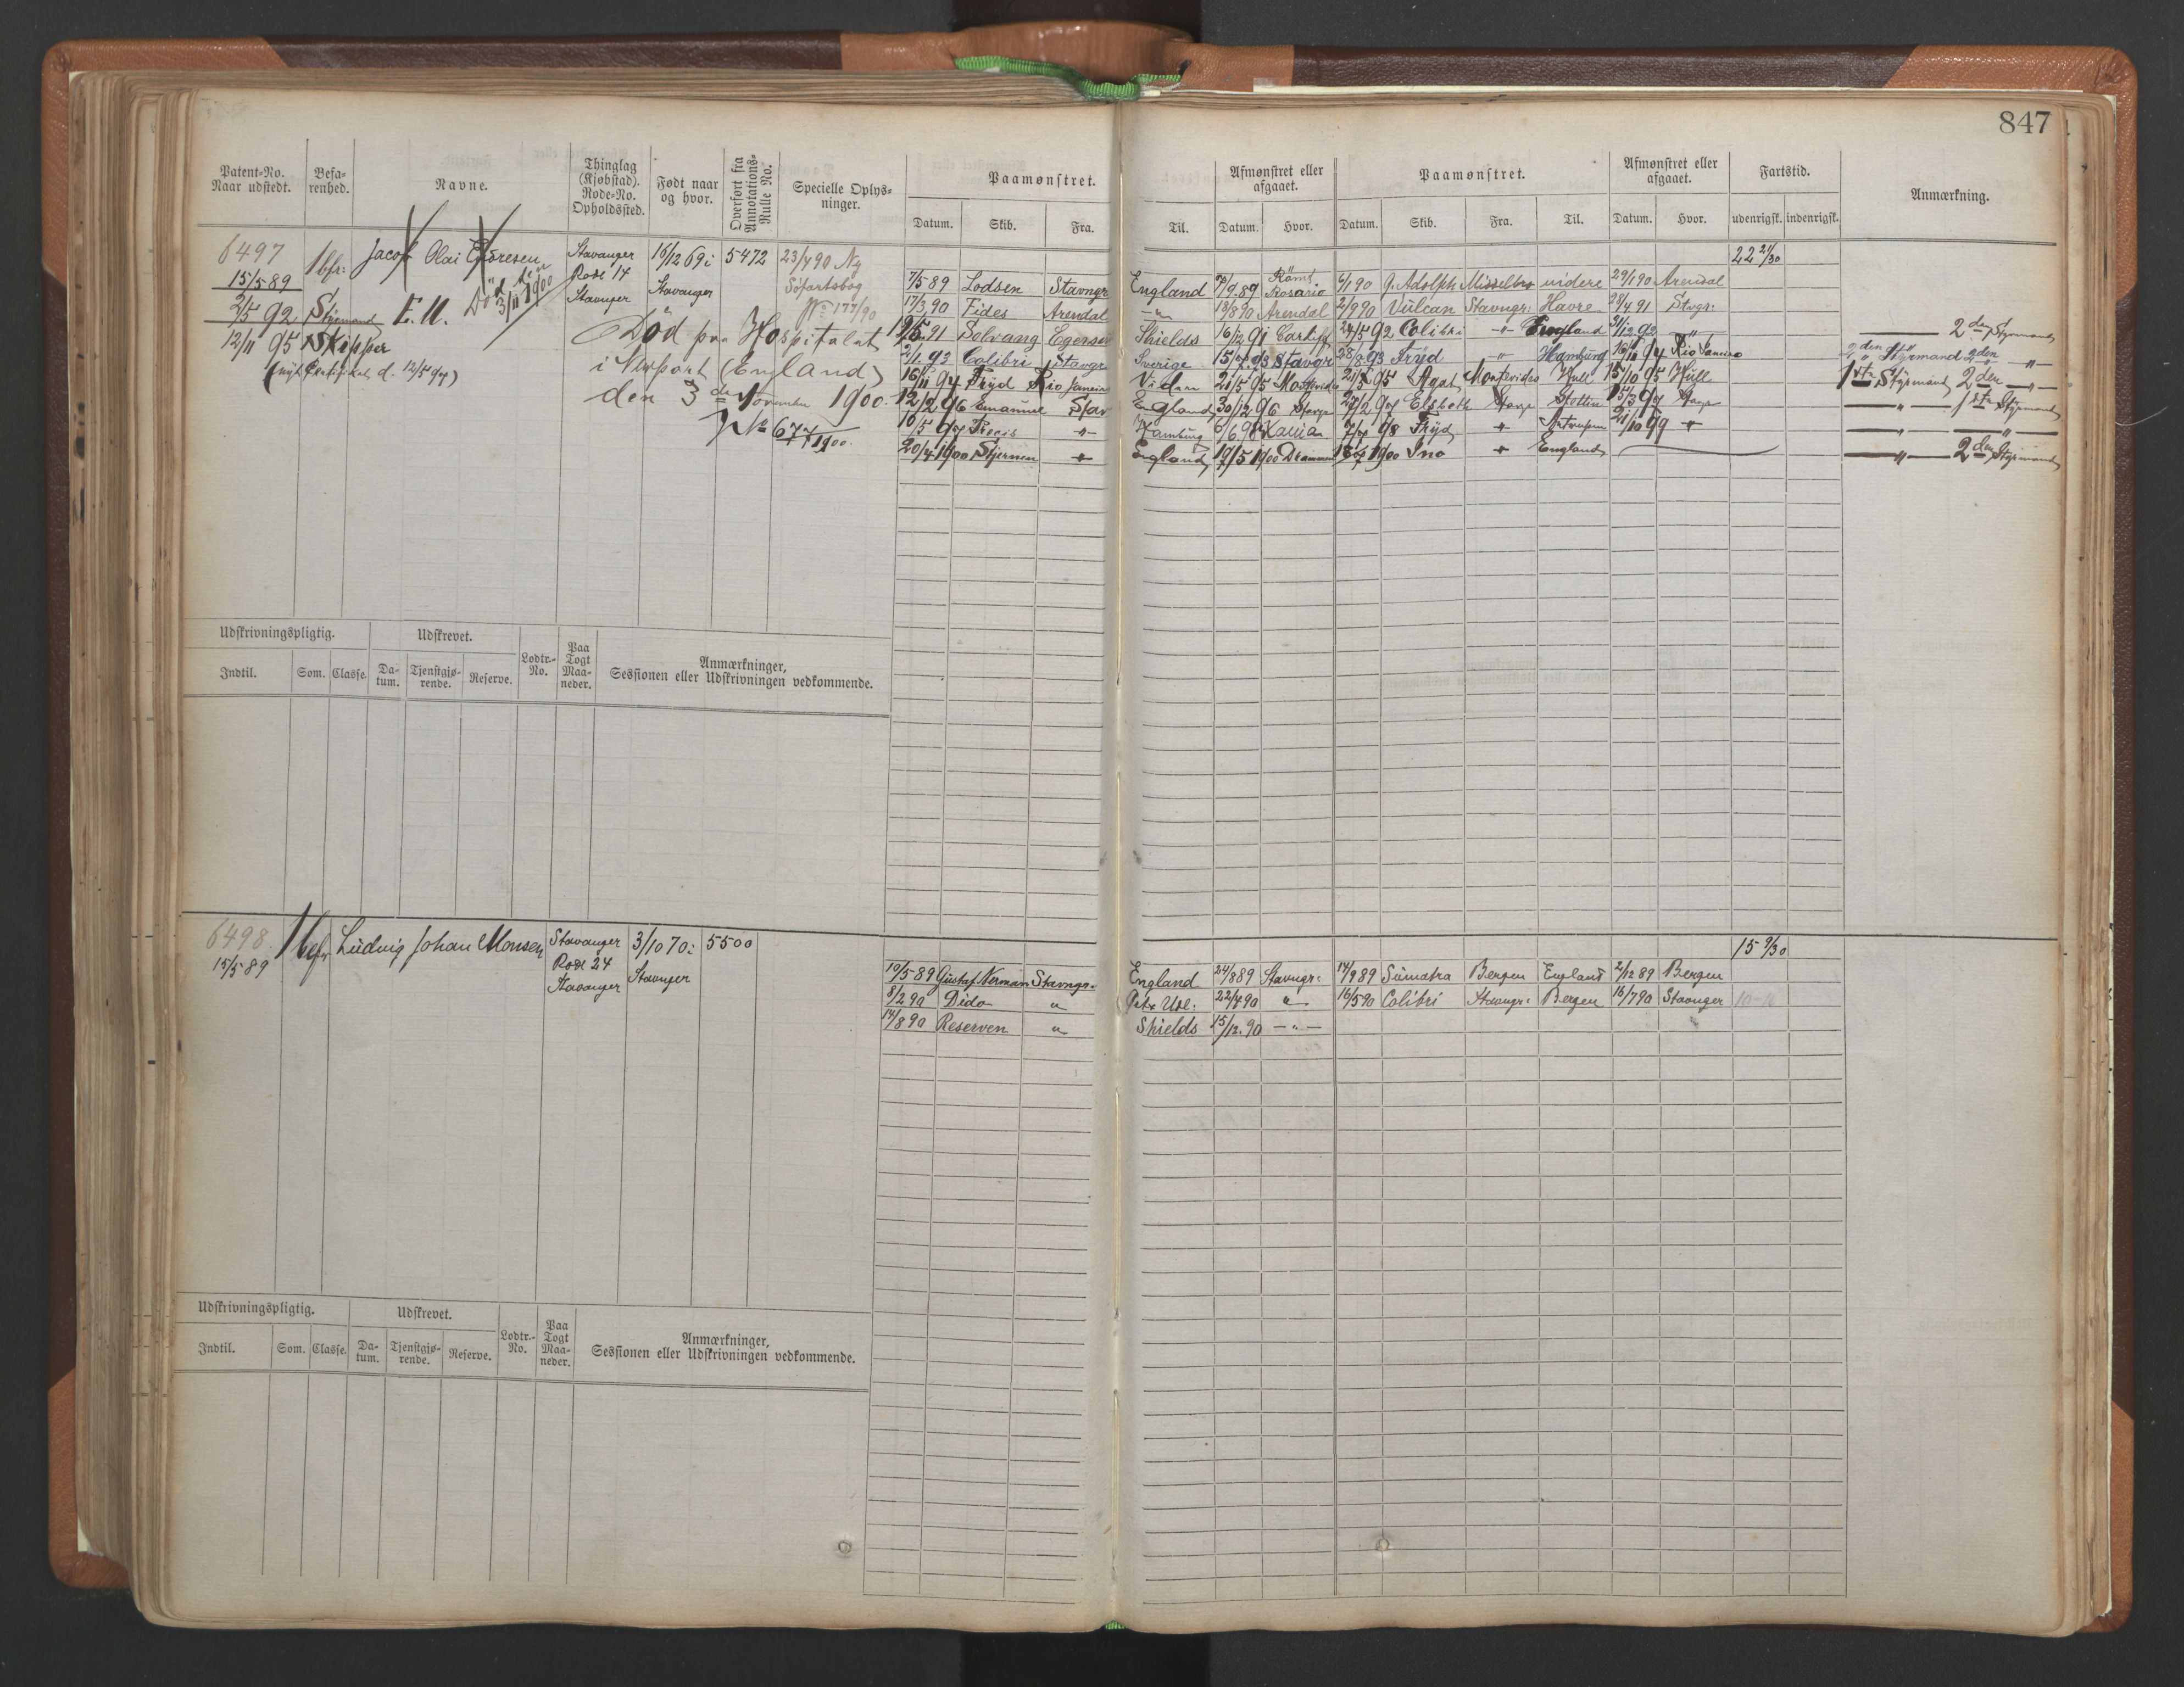 847
Patent-No. Naar udstedt. Befa-renhed. Navne. Thinglag (Kjøbstad). Rode-No. Opholdssted. Født naar og hvor. Overført fra Annotations-Rulle No. Specielle Oplys-ninger. Paamønstret. Afmønstret eller afgaaet. Paamønstret. Afmønstret eller afgaaet. Fartstid. Anmærkning.
Datum. Skib. Fra. Til. Datum. Hvor. Datum. Skib. Fra. Til. Datum. Hvor. udenrigsk. indenrigsk.
6497 1bfr: Jacob Olai Stavanger 16/12 69 i 5472 23/4 90 Ny 22 21/30
15/5 89 Død den 3/11 1900 Rode 14 Stavanger Söfartsbog 7/5 89 Lodsen Stavngr England 7/9 89 Römt Rosario 6/1 90 G. Adolph videre 29/1 90 Arendal
2/5 92 Styrmand E. U. Stavanger No 177/90 17/3 90 Fides Arendal 13/8 90 Arendal 2/9 90 Vulcan Stavngr: Havre 28/4 91 Stvgr:
12/11 95 Skipper Död paa Hospitalet 19/5 91 Solvang Egersu Shields 16/12 91 Cardiff 27/5 92 Colibri England 21/12 92 2den Styrmand
(nyt Certifikat d. 12/5 97) i Newport (England) 2/1 93 Colibri Stavgr Sverige 15/7 93 Stavgr 28/8 93 Fryd Hamburg 16/11 94 Rio Janeiro 2den Styrmand 2den
den 3de November 1900. 16/11 94 Fryd Rio Janeiro Videre 21/5 95 Montevideo 21/5 95 Agat Montevideo Hull 15/10 95 Hull 1ste Styrmand 2den
No 677/1900. 12/2 96 Emanuel Stav England 30/12 96 Stavgr 27/2 97 Elsbeth Stavgr Stettin 15/3 97 Stavgr 1ste Styrmand
10/5 97 Precis Hamburg 9/6 98 7/7 98 Fryd Antwerpen 21/10 99
20/4 1900 Stjernen England 19/5 1900 Drammen 1900 Ino England 2den Styrmand
Udskrivningspligtig. Udskrevet. Lodtr.-No. Paa Togt Maa-neder. Anmærkninger, Sessionen eller Udskrivningen vedkommende.
Indtil. Som. Classe. Da-tum. Tjenstgjø-rende. Reserve.
6498 1bfr Ludvig Johan Monsen Stavanger 3/10 70 i 5500 15 9/30
15/5 89 Rode 24 Stavanger 10/5 89 Gustaf Nerman Stavngr. England 24/8 89 Stavngr: 14/9 89 Sumatra Bergen England 2/12 89 Bergen
Stavanger 8/2 90 Dido " Udl: 22/4 90 " 16/5 90 Colibri Stavngr: Bergen 16/7 90 Stavnger
14/8 90 Reserven " Shields 15/12 90 - " -
Udskrivningspligtig. Udskrevet. Lodtr.-No. Paa Togt Maa-neder. Anmærkninger, Sessionen eller Udskrivningen vedkommende.
Indtil. Som. Classe. Da-tum. Tjenstgjø-rende. Reserve.